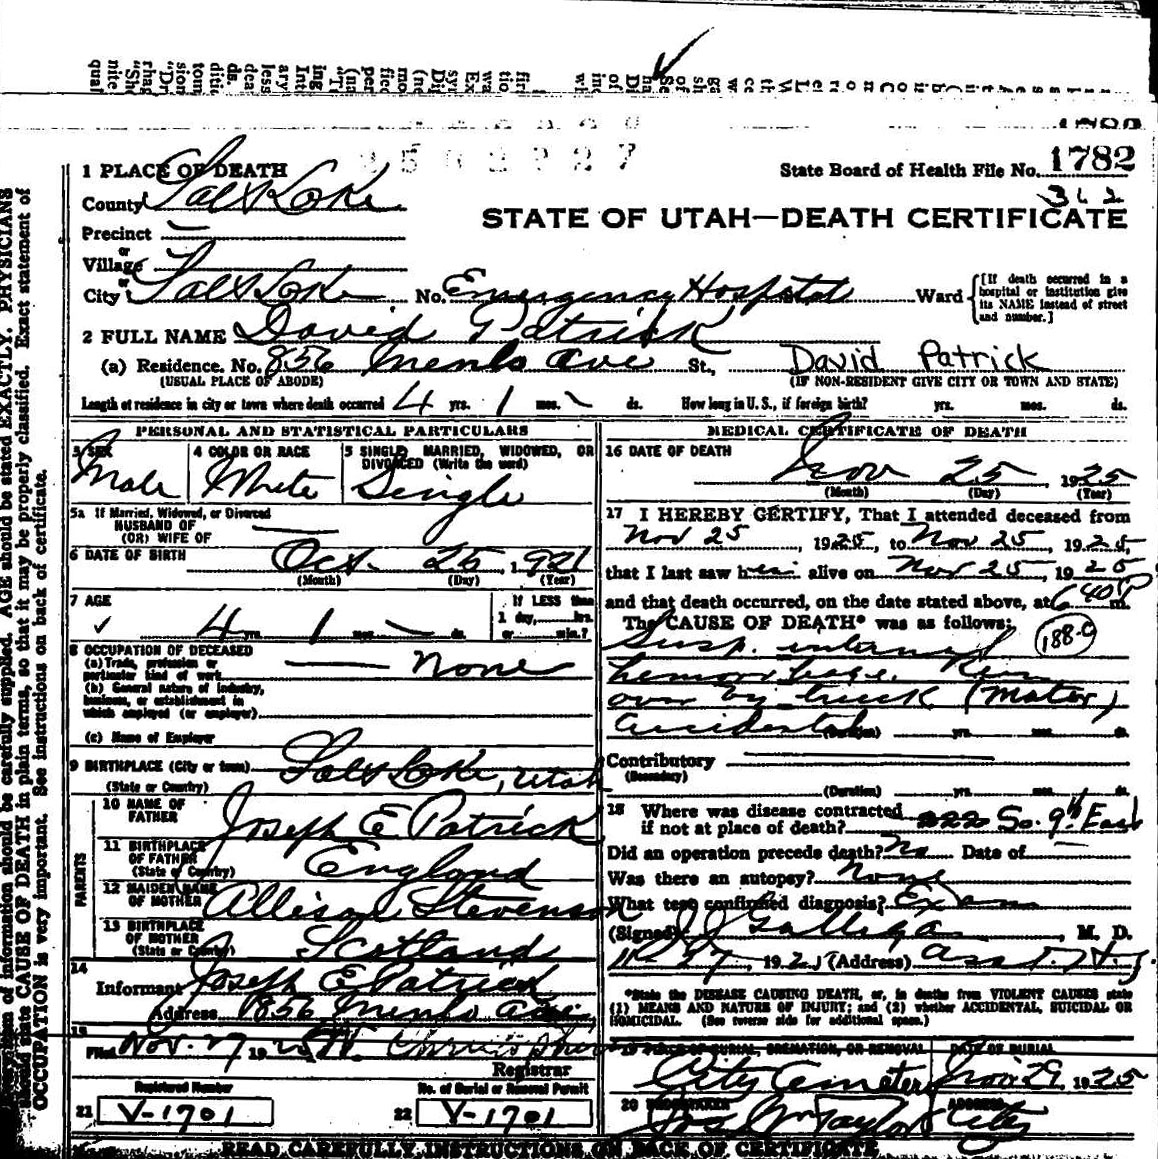 1782
3503227
1 PLACE OF DEATH
State Board of Health File No. 1782
County Salt Lake
312
STATE OF UTAH—DEATH CERTIFICATE
Precinct —
or
Village
or
City Salt Lake No. Emergency Hospital Ward
[If death occurred in a hospital or institution give its NAME instead of street and number.]
2 FULL NAME David Patrick
(a) Residence. No. 856 Menlo Ave St., David Patrick
(USUAL PLACE OF ABODE) (IF NON-RESIDENT GIVE CITY OR TOWN AND STATE)
Length of residence in city or town where death occurred 4 yrs. 1 mos. – ds. How long in U. S., if foreign birth? yrs. mos. ds.
PERSONAL AND STATISTICAL PARTICULARS
3 SEX
Male
4 COLOR OR RACE
White
5 SINGLE, MARRIED, WIDOWED, OR DIVORCED (Write the word)
Single
5a If Married, Widowed, or Divorced
HUSBAND OF
(OR) WIFE OF —
6 DATE OF BIRTH Oct. 25, 1921
(Month) (Day) (Year)
7 AGE
✓ 4 yrs. 1 mos. – ds.
If LESS than 1 day, hrs. or min.?
8 OCCUPATION OF DECEASED
(a) Trade, profession or particular kind of work — none
(b) General nature of industry, business, or establishment in which employed (or employer)
(c) Name of Employer
9 BIRTHPLACE (City or town) Salt Lake, Utah
(State or Country)
PARENTS
10 NAME OF FATHER Joseph E Patrick
11 BIRTHPLACE OF FATHER (State or Country) England
12 MAIDEN NAME OF MOTHER Allison Stevenson
13 BIRTHPLACE OF MOTHER (State or Country) Scotland
14
Informant Joseph E Patrick
Address 856 Menlo Ave,
15
Filed Nov. 27 1925
Registrar
Registered Number
21 V-1701
No. of Burial or Removal Permit
22 V-1701
MEDICAL CERTIFICATE OF DEATH
16 DATE OF DEATH
Nov 25 1925
(Month) (Day) (Year)
17 I HEREBY CERTIFY, That I attended deceased from
Nov 25, 1925, to Nov 25, 1925,
that I last saw him alive on Nov 25, 1925
and that death occurred, on the date stated above, at 6 40 P m.
The CAUSE OF DEATH* was as follows:
Susp. internal 188-c
hemorrhage. Run
over by truck (Motor)
Accidental (Duration) yrs. mos. ds.
Contributory —
(Secondary)
(Duration) yrs. mos. ds.
18 Where was disease contracted
if not at place of death? 222 So. 9th East
Did an operation precede death? No Date of
Was there an autopsy? None
What test confirmed diagnosis? Exam
(Signed) J J Galligan, M. D.
11 27, 1925 (Address)
*State the DISEASE CAUSING DEATH, or, in deaths from VIOLENT CAUSES state
(1) MEANS AND NATURE OF INJURY; and (2) whether ACCIDENTAL, SUICIDAL OR
HOMICIDAL. (See reverse side for additional space.)
19 PLACE OF BURIAL, CREMATION, OR REMOVAL
City Cemetery
DATE OF BURIAL
Nov. 29, 1925
20 UNDERTAKER
Jos Wm Taylor
ADDRESS
City
READ CAREFULLY INSTRUCTIONS ON BACK OF CERTIFICATE
of information should be carefully supplied. AGE should be stated EXACTLY. PHYSICIANS
should state CAUSE OF DEATH in plain terms, so that it may be properly classified. Exact statement of
OCCUPATION is very important. See instructions on back of certificate.